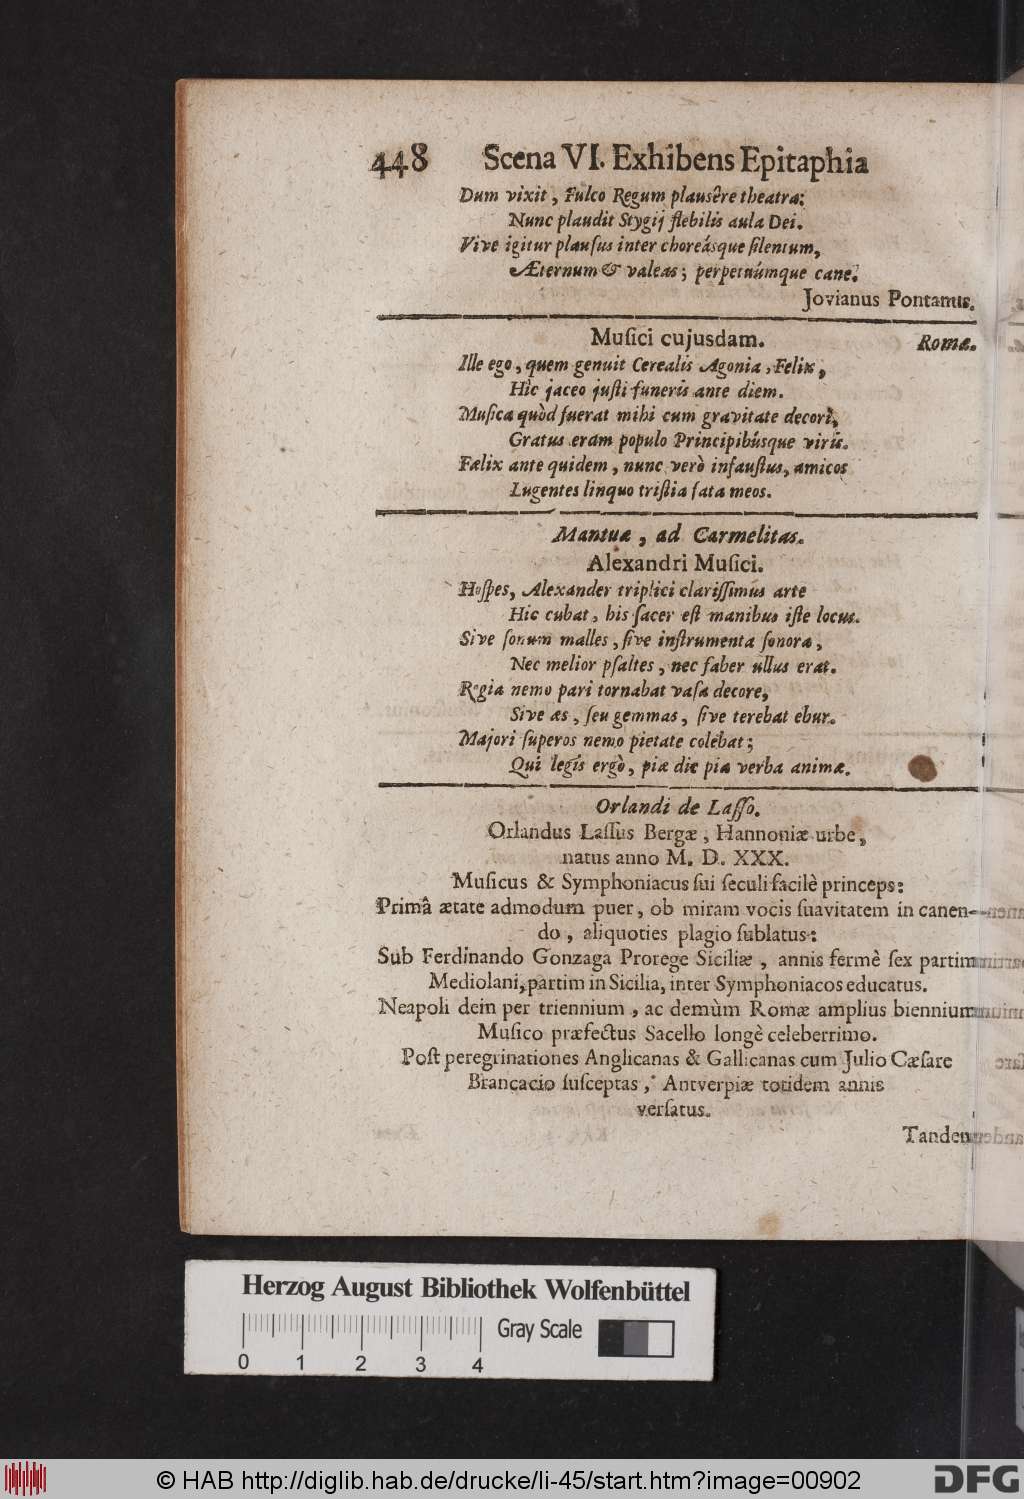 448 Scena VI. Exhibens Epitaphia
Dum vixit, Fulco Regum plausêre theatra:
Nunc plaudit Stygij flebilis aula Dei.
Vive igitur plauſus inter choreásque ſilentum,
Æternum & valeas; perpetuúmque cane.
Jovianus Pontanus.
Muſici cujusdam. Romæ.
Ille ego, quem genuit Cerealis Agonia, Felix,
Hîc jaceo juſti funeris ante diem.
Muſica quòd fuerat mihi cum gravitate decori,
Gratus eram populo Principibúsque viris.
Fælix ante quidem, nunc verò infauſtus, amicos
Lugentes linquo triſtia fata meos.
Mantuæ, ad Carmelitas.
Alexandri Muſici.
Hoſpes, Alexander triplici clariſſimus arte
Hic cubat, his ſacer eſt manibus iſte locus.
Sive ſonum malles, ſive inſtrumenta ſonora,
Nec melior pſaltes, nec faber ullus erat.
Regia nemo pari tornabat vaſa decore,
Sive æs, ſeu gemmas, ſive terebat ebur.
Majori ſuperos nemo pietate colebat;
Qui legis ergò, piæ dic pia verba animæ.
Orlandi de Laſſo.
Orlandus Laſſus Bergæ, Hannoniæ urbe,
natus anno M. D. XXX.
Muſicus & Symphoniacus ſui ſeculi facilè princeps:
Primâ ætate admodum puer, ob miram vocis ſuavitatem in canen-
do, aliquoties plagio ſublatus:
Sub Ferdinando Gonzaga Prorege Siciliæ, annis fermè ſex partim
Mediolani, partim in Sicilia, inter Symphoniacos educatus.
Neapoli dein per triennium, ac demùm Romæ amplius biennium
Muſico præfectus Sacello longè celeberrimo.
Poſt peregrinationes Anglicanas & Gallicanas cum Julio Cæſare
Brancacio ſuſceptas, Antverpiæ totidem annis
verſatus.
Tandem
Herzog August Bibliothek Wolfenbüttel
Gray Scale
0 1 2 3 4
© HAB http://diglib.hab.de/drucke/li-45/start.htm?image=00902
DFG